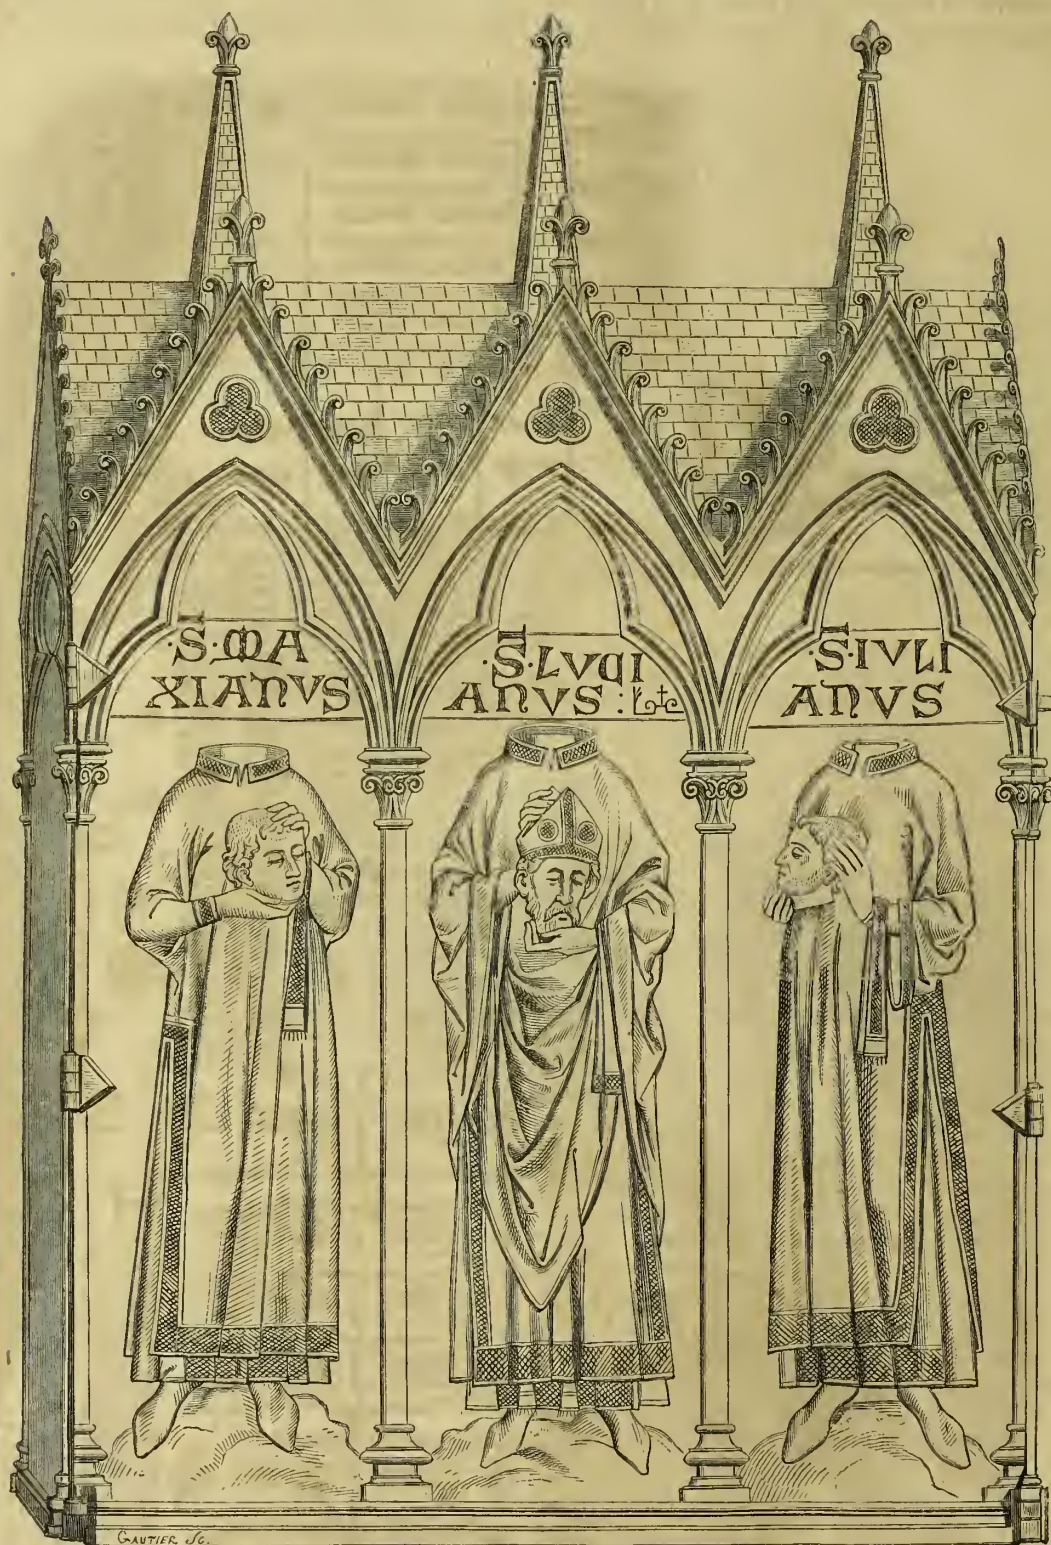 ·S·MA
XIANVS
·S·LVCI
ANVS :
·S·IVLI
ANVS
GAUTIER SC.